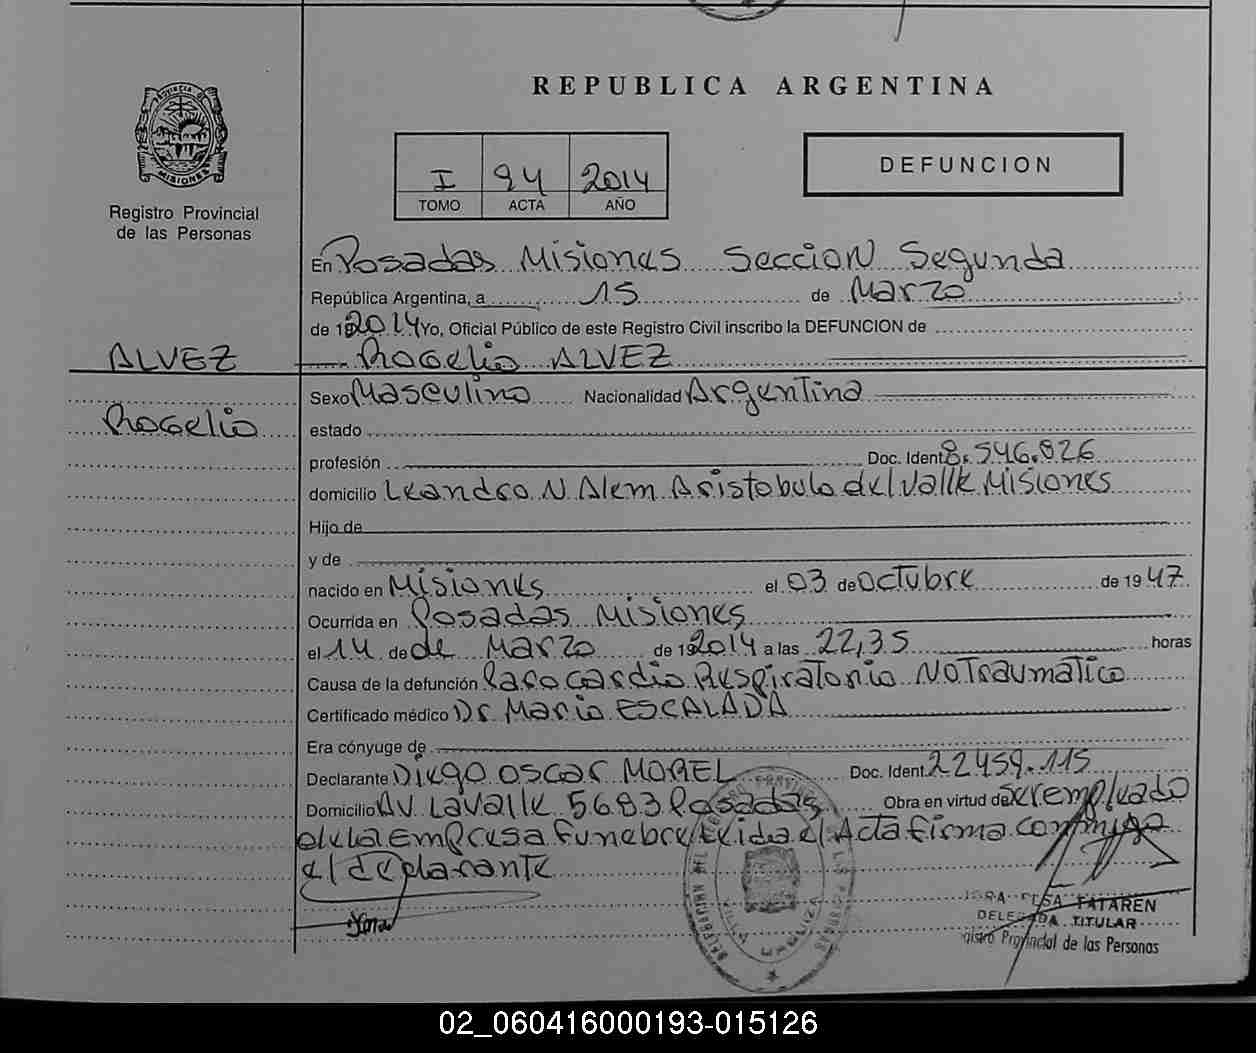 REPUBLICA ARGENTINA
PROVINCIA DE
MISIONES
Registro Provincial
de las Personas
I 94 2014
TOMO ACTA AÑO
DEFUNCION
En Posadas Misiones Seccion Segunda
República Argentina, a 15 de Marzo
de 19 2014 Yo, Oficial Público de este Registro Civil inscribo la DEFUNCION de
ALVEZ
Rogelio ALVEZ
Rogelio
Sexo Masculino Nacionalidad Argentina
estado
profesión Doc. Ident 8.546.826
domicilio Leandro N Alem Aristobulo del Valle Misiones
Hijo de
y de
nacido en Misiones el 03 de Octubre de 19 47
Ocurrida en Posadas Misiones
el 14 de de Marzo de 19 2014 a las 22,35 horas
Causa de la defunción Paro Cardio Respiratorio No Traumatico
Certificado médico Dr Mario ESCALADA
Era cónyuge de
Declarante Diego Oscar MOREL Doc. Ident 22459.115
Domicilio AV Lavalle 5683 Posadas Obra en virtud de ser empleado
de la Empresa Funebre Leida el Acta firma conmigo
el declarante
ELSA TATAREN
DELEGADA TITULAR
Registro Provincial de las Personas
02_060416000193-015126